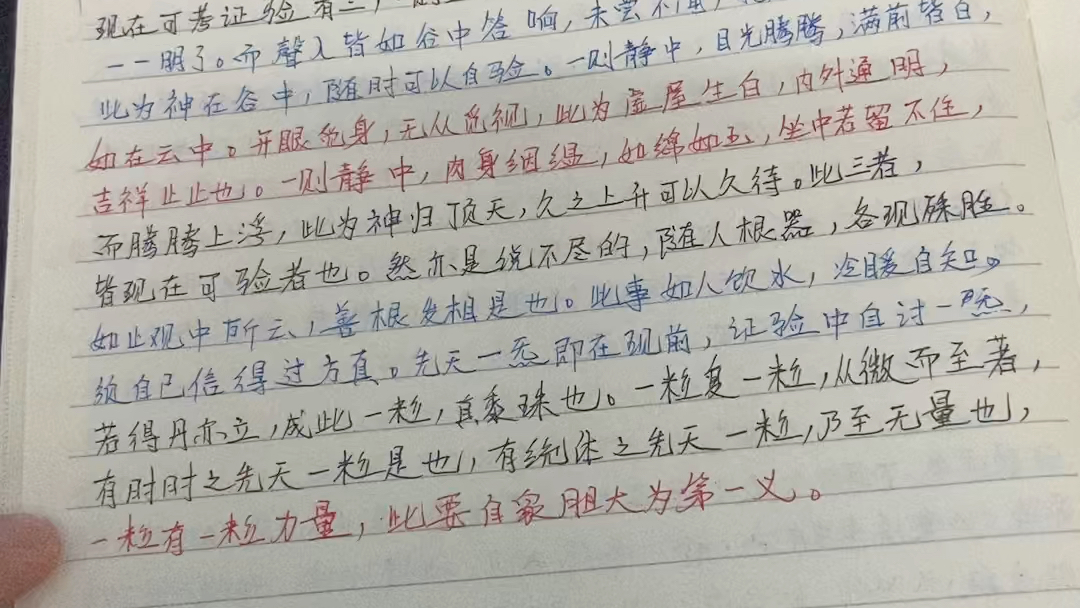 现在可考证验有三，
一一明了。而聲入皆如谷中答响，未尝不
此为神在谷中，随时可以自验。一则静中，目光腾腾，满前皆白，
如在云中。开眼觅身，无从觅视，此为虚屋生白，内外通明，
吉祥止止也。一则静中，肉身絪缊，如绵如玉，坐中若留不住，
而腾腾上浮，此为神归顶天，久之上升可以久待。此三者，
皆现在可验者也。然亦是说不尽的，随人根器，各现殊胜。
如止观中所云，善根发相是也。此事如人饮水，冷暖自知。
须自己信得过方真。先天一炁即在现前，证验中自讨一炁，
若得丹亦立，成此一粒，真黍珠也。一粒复一粒，从微而至著，
有时时之先天一粒是也，有统体之先天一粒，乃至无量也，
一粒有一粒力量，此要自家胆大为第一义。